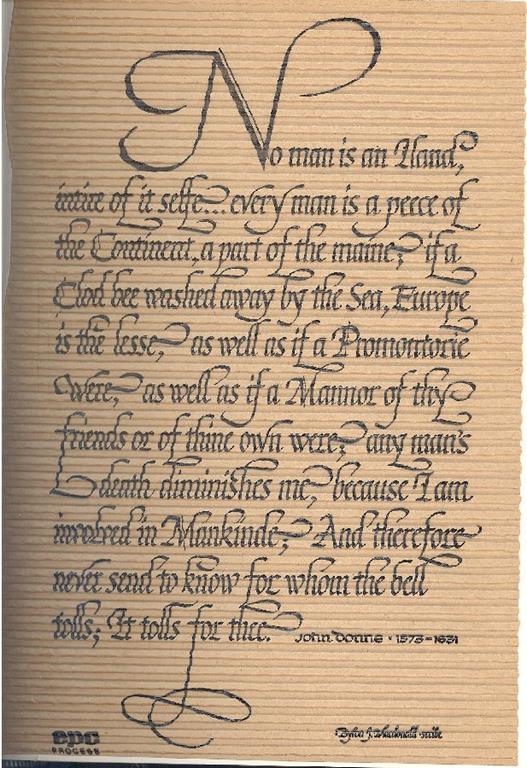 No man is an Iland,
intire of it selfe... every man is a peece of
the Continent, a part of the maine; if a
Clod bee washed away by the Sea, Europe
is the lesse, as well as if a Promontorie
were, as well as if a Mannor of thy
friends or of thine own were; any man's
death diminishes me, because I am
involved in Mankinde; And therefore
never send to know for whom the bell
tolls; It tolls for thee. John Donne · 1573-1631
epc
PROCESS